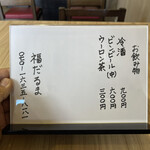 お飲み物
冷酒 九〇〇円
ビンビール(中) 六〇〇円
ウーロン茶 三〇〇円
福だるま